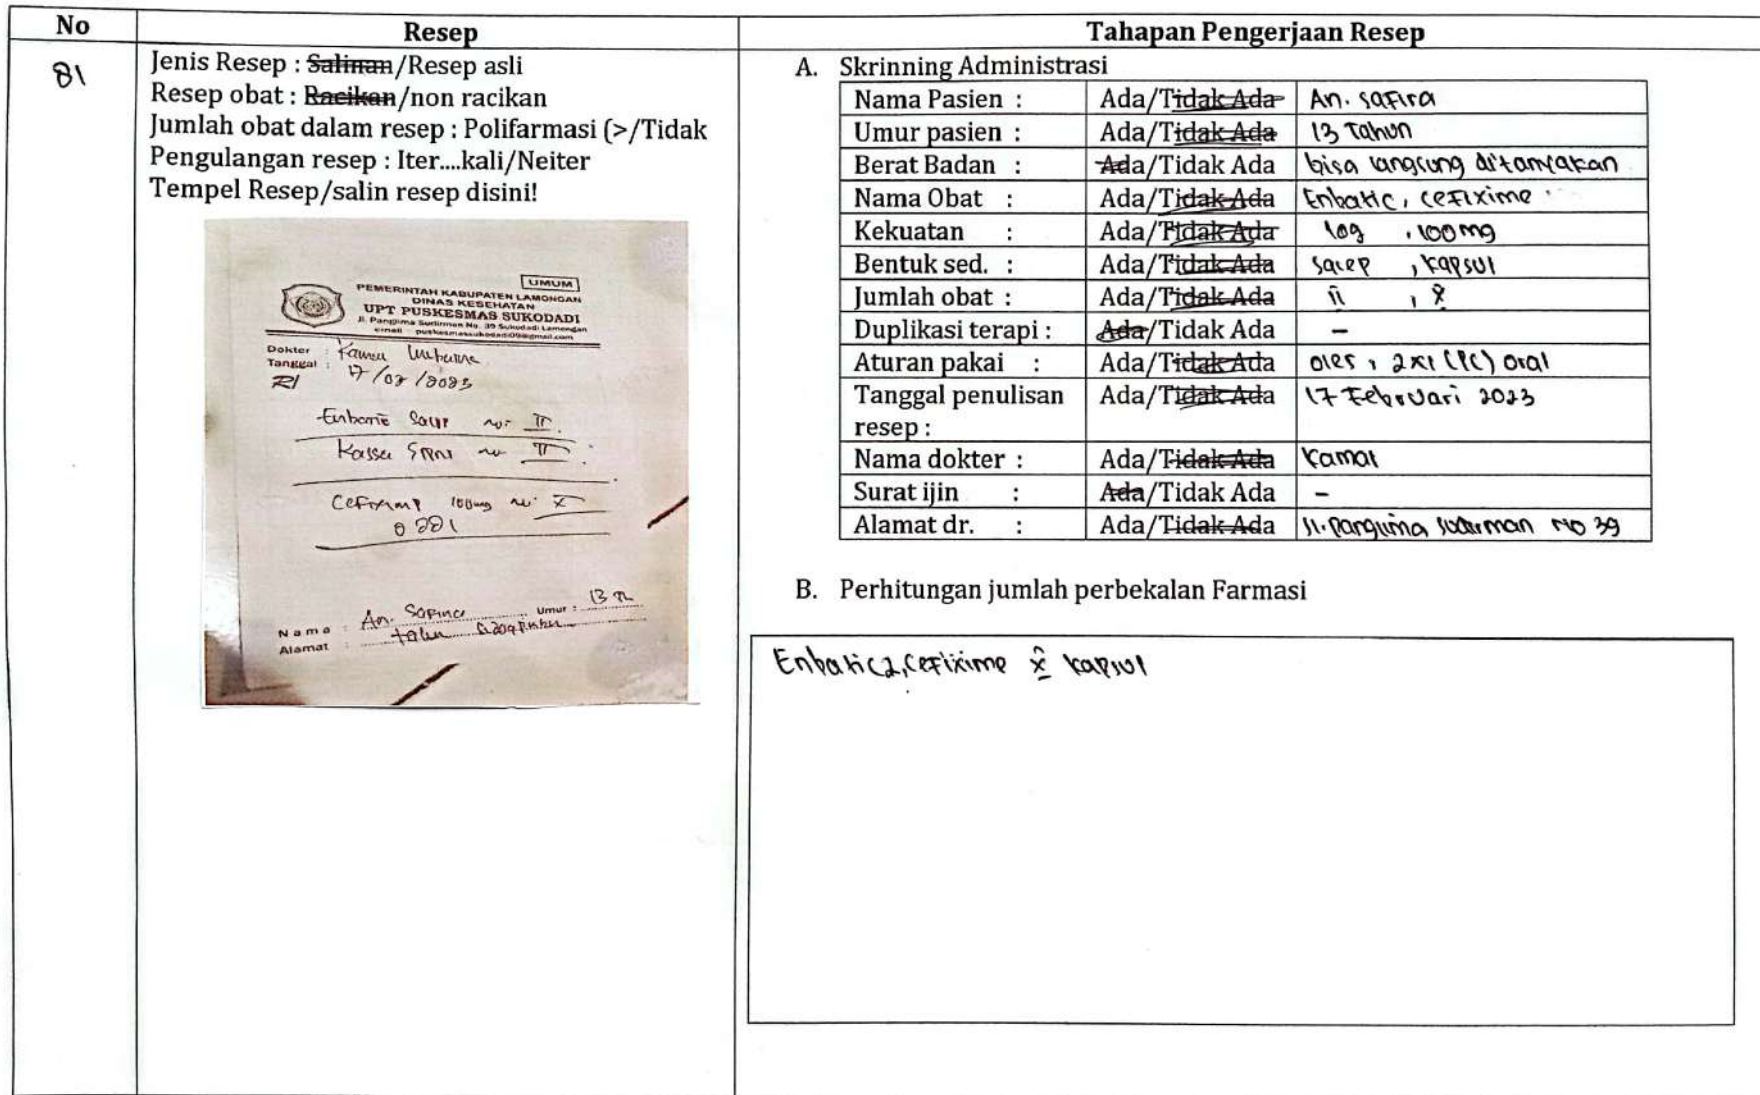 No
Resep
Tahapan Pengerjaan Resep
81
Jenis Resep : Salinan/Resep asli
Resep obat : Racikan/non racikan
Jumlah obat dalam resep : Polifarmasi (>/Tidak
Pengulangan resep : Iter....kali/Neiter
Tempel Resep/salin resep disini!
UMUM
PEMERINTAH KABUPATEN LAMONGAN
DINAS KESEHATAN
UPT PUSKESMAS SUKODADI
Jl. Panglima Sudirman No. 39 Sukodadi Lamongan
Dokter :
Tanggal : 17/02/2023
R/
Salep no II
Kassa no II
100mg no X
Nama : An. Umur : 13
Alamat :
A. Skrinning Administrasi
Nama Pasien : Ada/Tidak Ada An. Safira
Umur pasien : Ada/Tidak Ada 13 Tahun
Berat Badan : Ada/Tidak Ada bisa langsung ditanyakan
Nama Obat : Ada/Tidak Ada Enbatic, cefixime
Kekuatan : Ada/Tidak Ada , 100 mg
Bentuk sed. : Ada/Tidak Ada salep , kapsul
Jumlah obat : Ada/Tidak Ada ii , x
Duplikasi terapi : Ada/Tidak Ada -
Aturan pakai : Ada/Tidak Ada oles , 2x1 (PC) oral
Tanggal penulisan Ada/Tidak Ada 17 Februari 2023
resep :
Nama dokter : Ada/Tidak Ada Kamal
Surat ijin : Ada/Tidak Ada -
Alamat dr. : Ada/Tidak Ada Jl. Panglima Sudirman No 39
B. Perhitungan jumlah perbekalan Farmasi
Enbatic 2, Cefixime x kapsul